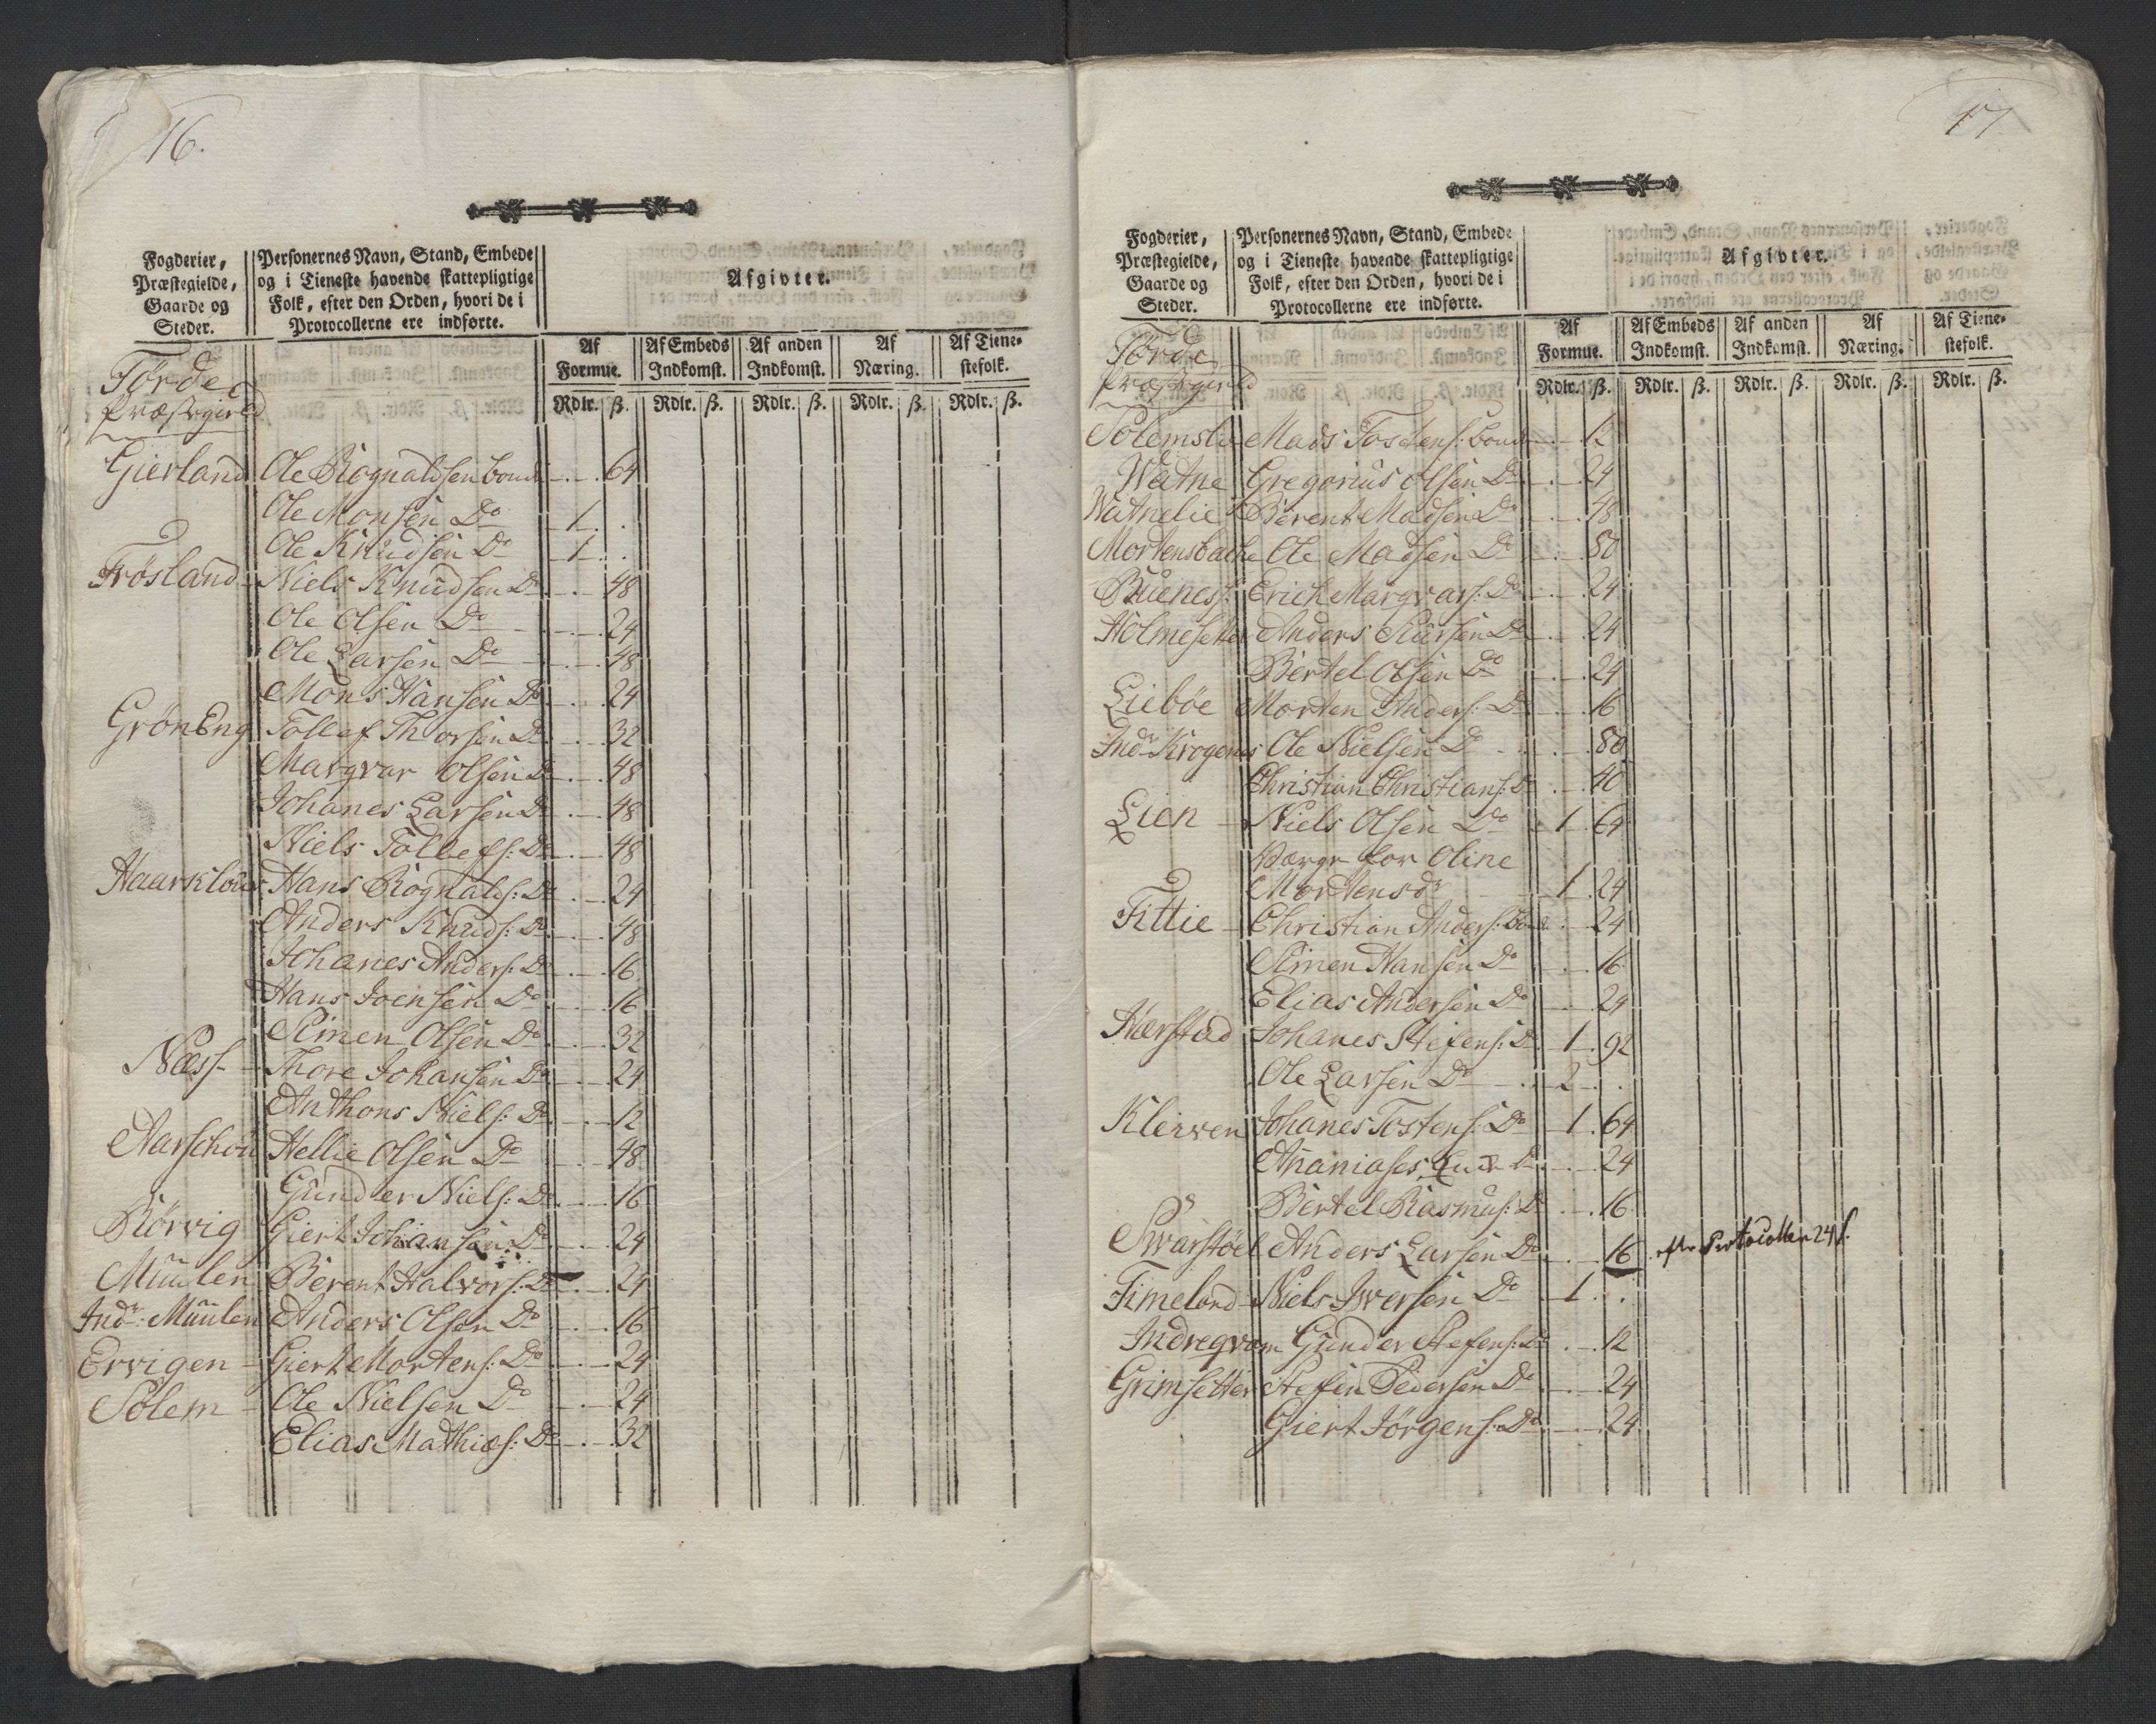 16.
Fogderier, Præstegielde, Gaarde og Steder.
Personernes Navn, Stand, Embede og i Tieneste havende skattepligtige Folk, efter den Orden, hvori de i Protocollerne ere indførte.
Afgivter.
Af Formue. Af Embeds Indkomst. Af anden Indkomst. Af Næring. Af Tienestefolk.
Rdlr. ß. Rdlr. ß. Rdlr. ß. Rdlr. ß. Rdlr. ß.
Førde
Præstegield
Gierland Ole Rognaldsen bonde - 64
Ole Monsen Do 1 .
Ole Knudsen Do 1 .
Frøsland Niels Knudsen Do - 48
Ole Olsen Do - 24
Ole Larsen Do - 48
Mons Hansen Do - 24
GrønEng Tollef Thorsen Do - 32
Margvar Olsen Do - 48
Johanes Larsen Do - 48
Niels Tollefs: Do - 48
Haarklou Hans Rognalds: Do - 24
Anders Knuds: Do - 48
Johanes Anders: Do - 16
Hans Joensen Do - 16
Simen Olsen Do - 32
Næss Thore Johansen Do - 24
Anthons Niels: Do - 12
Aarschou Hellie Olsen Do - 48
Gunder Niels: Do - 16
Rörvig Giert Johansen Do - 24
Muulen Berent Halvors: Do - 24
Indr: Muulen Anders Olsen Do - 16
Ervigen Giert Mortens: Do - 24
Solem Ole Nielsen Do - 24
Elias Mathias: Do - 32
17
Fogderier, Præstegielde, Gaarde og Steder.
Personernes Navn, Stand, Embede og i Tieneste havende skattepligtige Folk, efter den Orden, hvori de i Protocollerne ere indførte.
Afgivter.
Af Formue. Af Embeds Indkomst. Af anden Indkomst. Af Næring. Af Tienestefolk.
Rdlr. ß. Rdlr. ß. Rdlr. ß. Rdlr. ß. Rdlr. ß.
Førde
Præstegield
Solemslie Mads Tostens: bonde - 12
Watne Gregorius Olsen Do - 24
Watnelie Berent Madsen Do - 48
Mortensbache Ole Madsen Do - 80
Buenes: Erich Margvars: Do - 24
Holmesetter Anders Do - 24
Bertel Olsen Do - 24
Liebøe Morten Anders: Do - 16
Indr Krogenes Ole Nielsen Do - 80
Christian Christians: Do - 40
Lien Niels Olsen Do 1 64
Værge for Oline
Mortensdr 1 24
Fittie Christian Anders: bonde - 24
Simen Hansen Do - 16
Elias Andersen Do - 24
Hærstad Johanes Stefens: Do 1 92
Ole Larsen Do 2 .
Klerwen Johanes Tostens: Do 1 64
Ananiases Do - 24
Bertel Rasmus: Do - 16
Swarstøel Anders Larsen Do - 16 efter Protocollen 24 ß.
Fimeland Niels Iwersen Do 1 .
Indreqvam Gunder Stefens: Do - 12
Grimsetter Steffen Pedersen Do - 24
Giert Jørgens: Do - 24